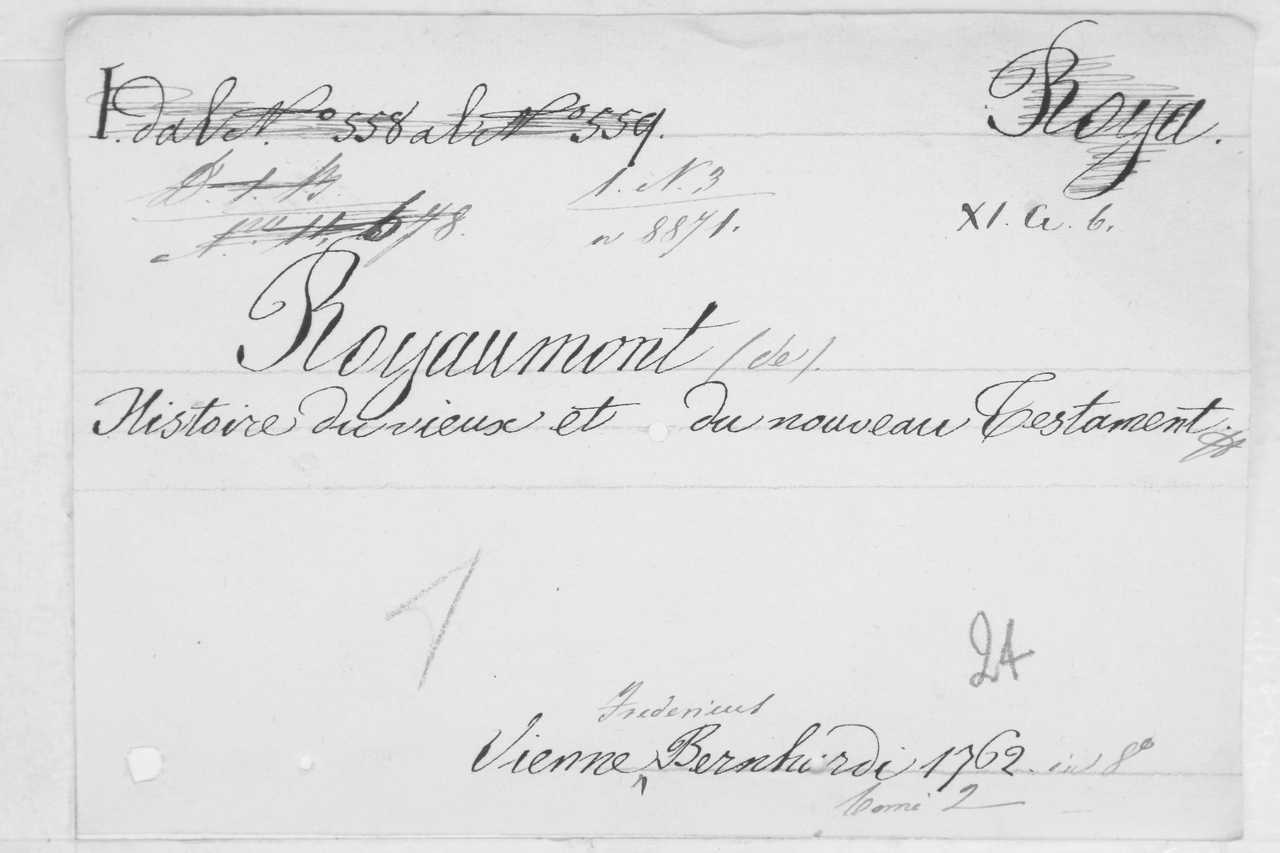 I. dal N.º 558 al N.º 559. Roya.
1. N. 3
n 8871. XI. G. 6.
Royaumont (de).
Histoire du vieux et du nouveau Testament.
24
Fredericus
Vienne Bernhardi 1762. in 8º
tomi 2